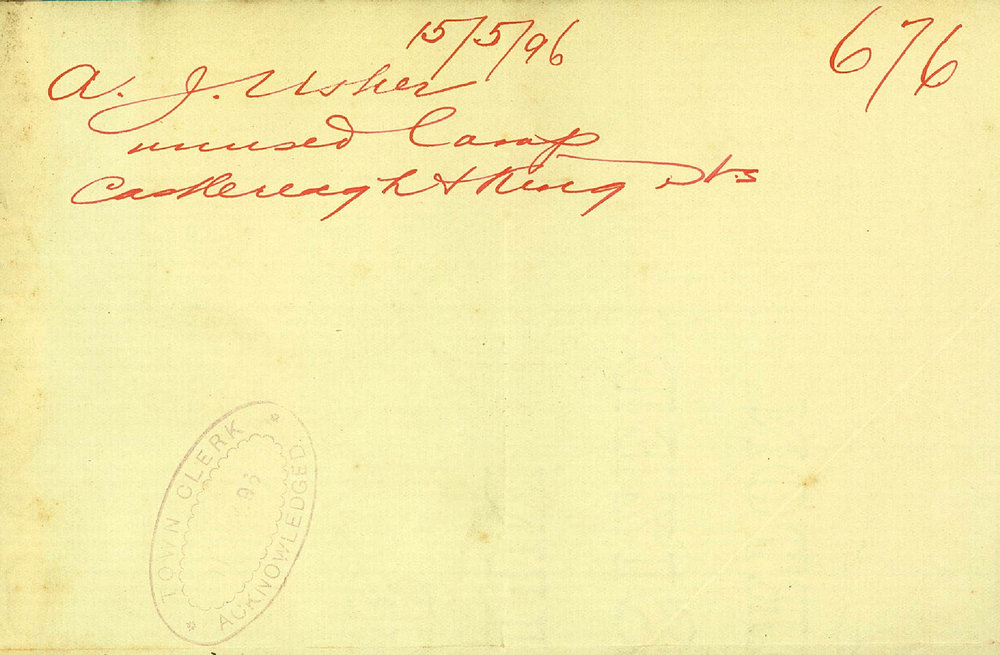 15/5/96
676
A. J. Usher
unused Lamp
Castlereagh & King Sts
TOWN CLERK
96
ACKNOWLEDGED.